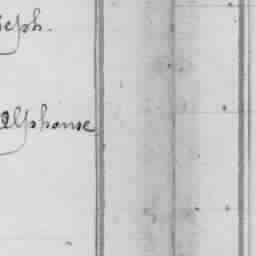 seph.
Alphonse